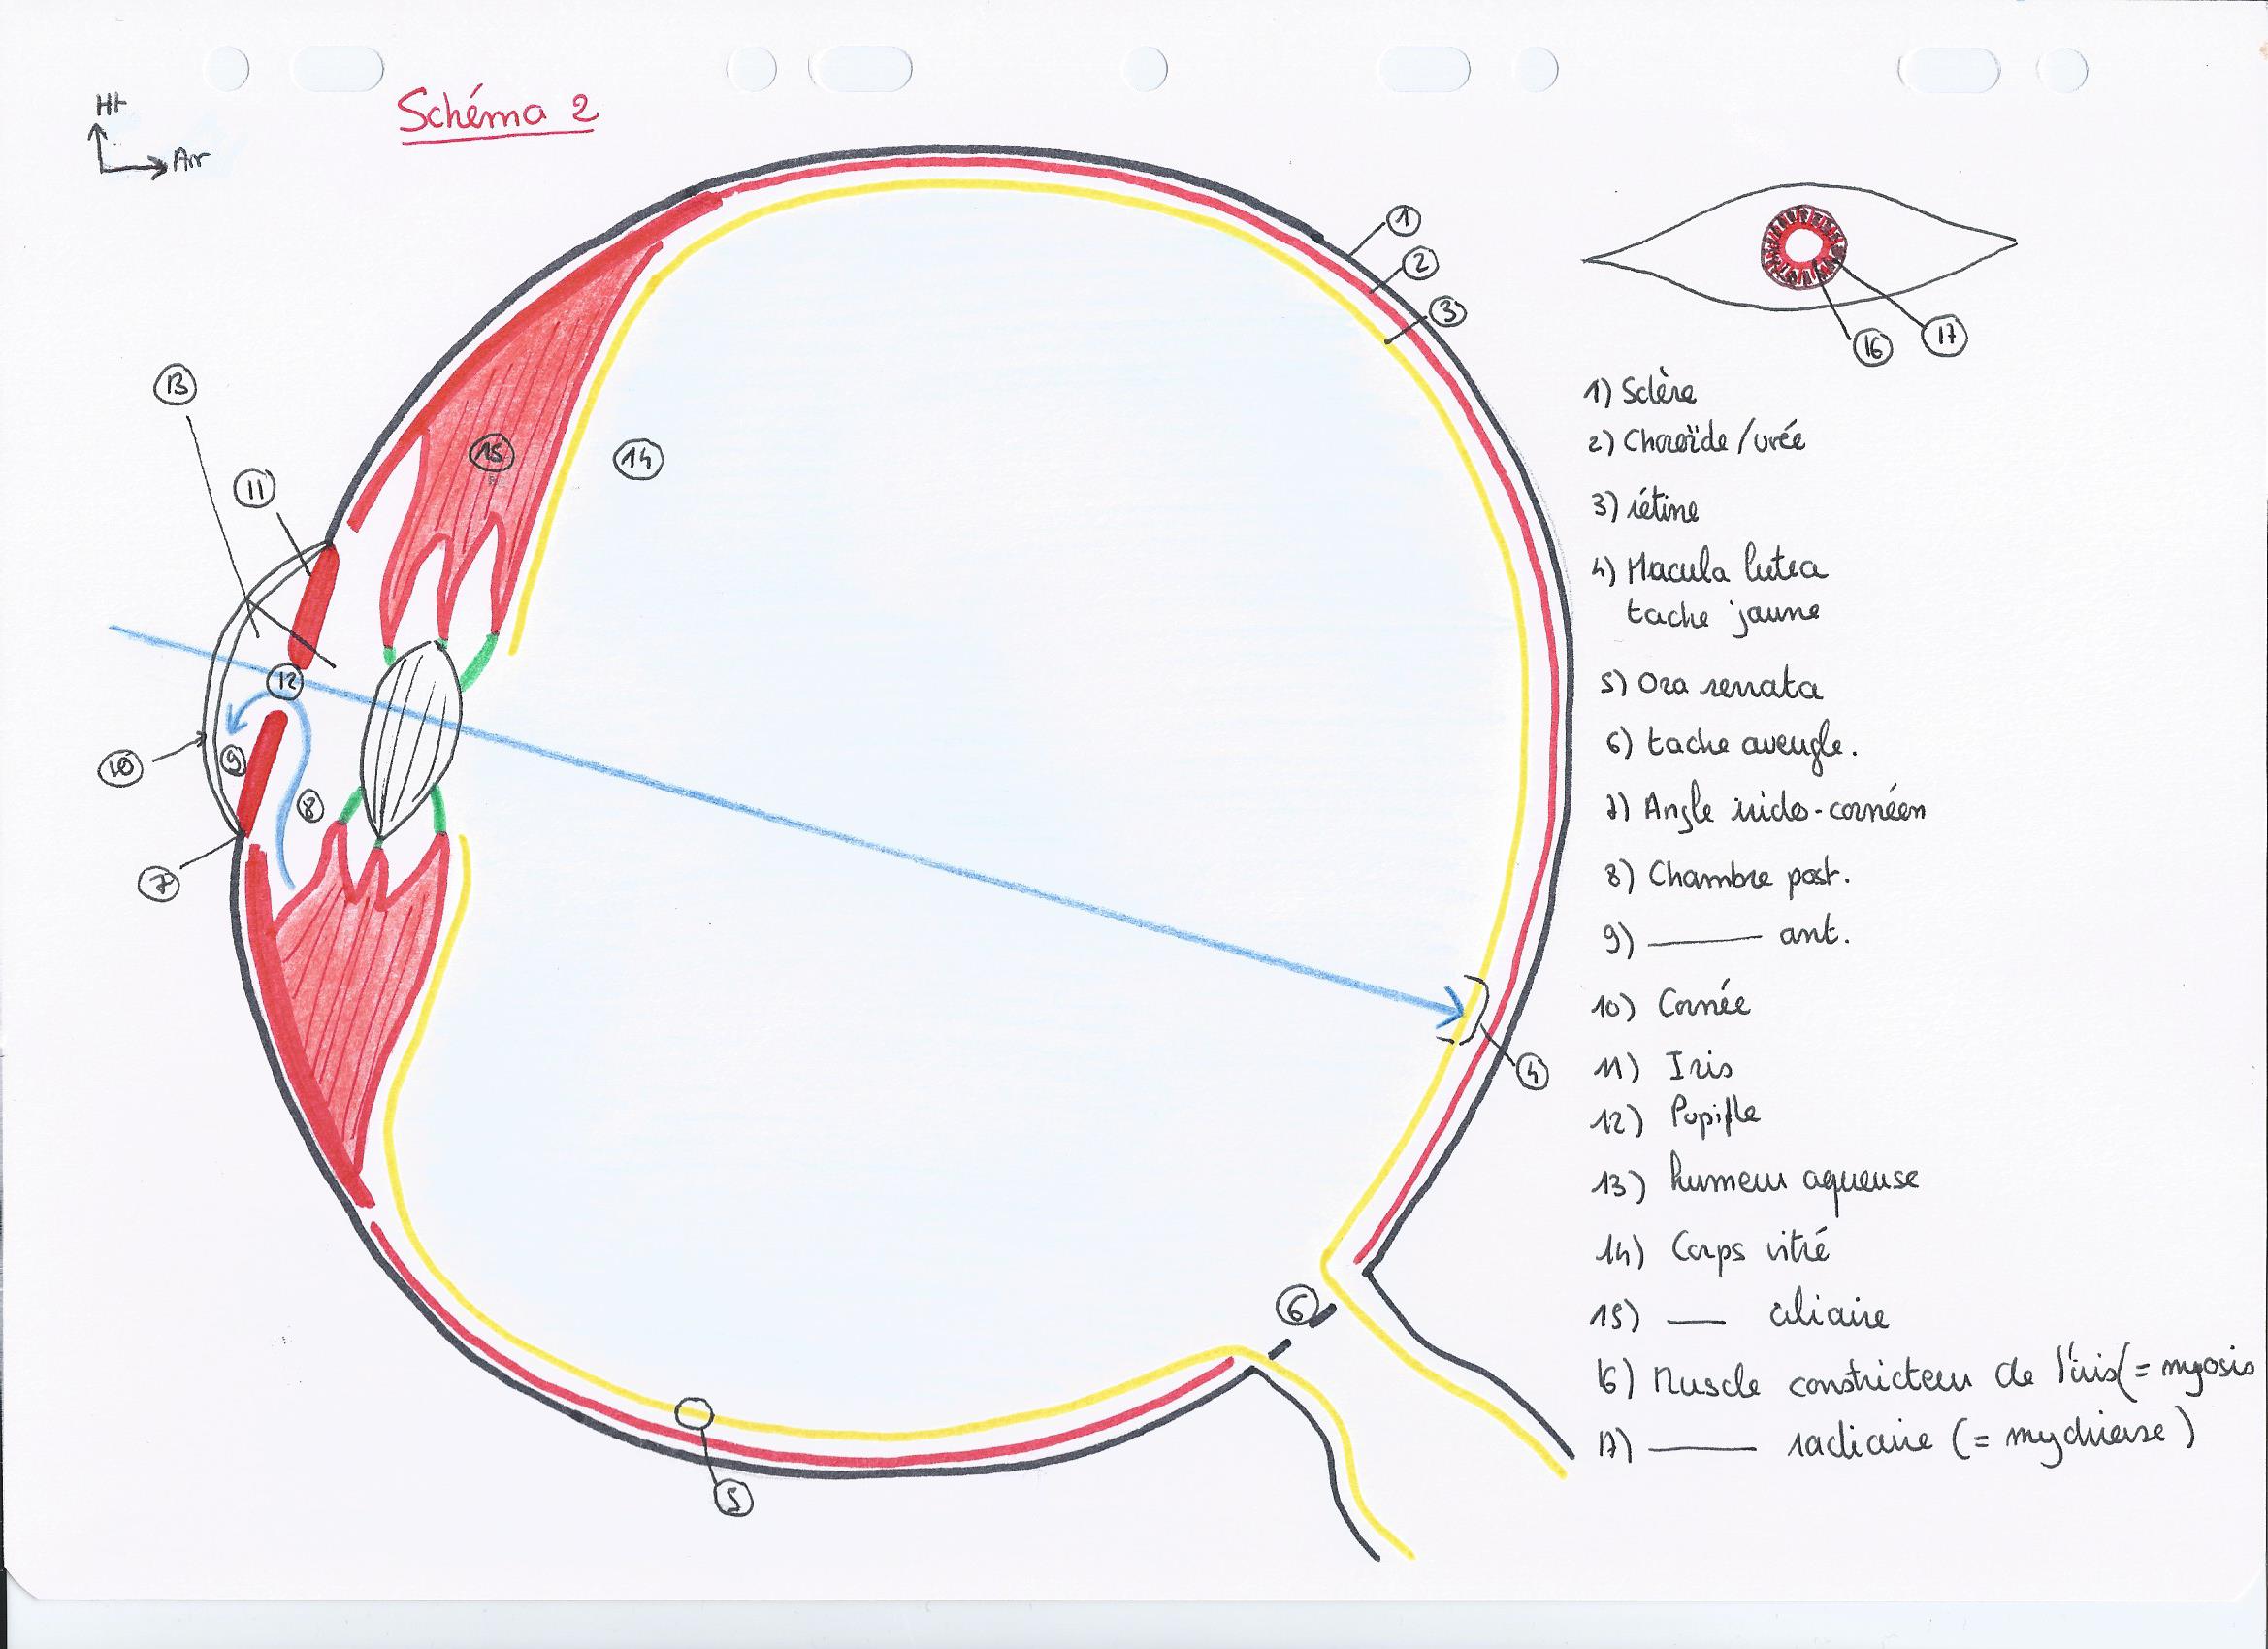 Schéma 2
Ht
Arr
1
2
3
13
11
15
14
12
10
9
8
7
4
6
5
16
17
1) Sclère
2) Choroïde / uvée
3) rétine
4) Macula lutea
tache jaune
5) Ora serrata
6) tache aveugle.
7) Angle irido-cornéen
8) Chambre post.
9) ——— ant.
10) Cornée
11) Iris
12) Pupille
13) humeur aqueuse
14) Corps vitré
15) —— ciliaire
16) Muscle constricteur de l'iris (= myosis
17) ——— radiaire (= mydriase)